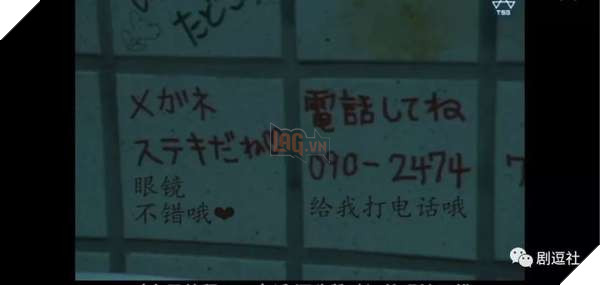 TSB
メガネ
ステキだね
眼镜
不错哦❤
電話してね
090-2474
给我打电话哦
LAG.VN
剧逗社